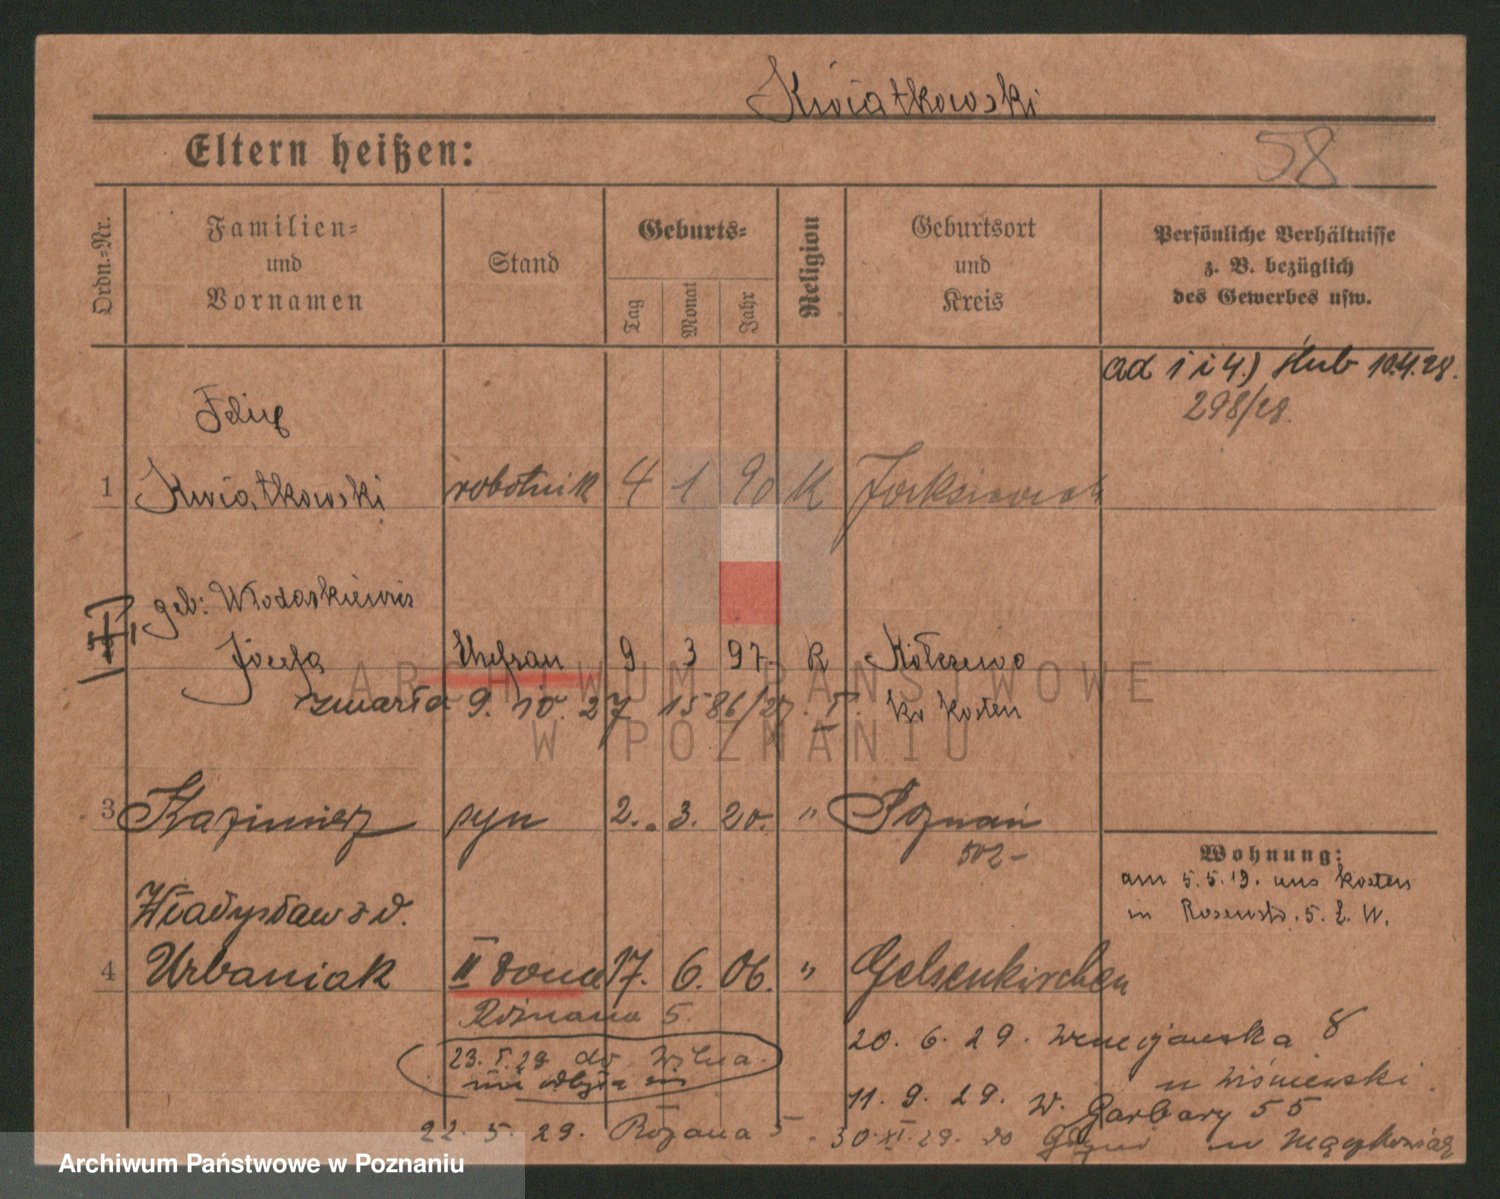 Kwiatkowski
Eltern heißen:
58
Ordn.-Nr.
Familien-
und
Vornamen
Stand
Geburts-
Tag
Monat
Jahr
Religion
Geburtsort
und
Kreis
Persönliche Verhältnisse
z. B. bezüglich
des Gewerbes usw.
ad 1 i 4.) ślub 10.4.28.
298/28.
1 Kwiatkowski robotnik 4 1 90 K
geb:
Józefa Ehefrau 9 3 97. K
zmarła 9. 10. 27 1586/27. I. Kr Kosten
3 Kazimierz syn 2. 3. 20. " Poznań
502-
Wohnung:
am 5.5.19. aus Kosten
in 5. b. W.
Władysława z d.
4 Urbaniak II żona 17. 6. 06. " Gelsenkirchen
Różana 5.
20. 6. 29. Wenecjańska 8
23. 5. 29 do Wilna.
u Wiśniewski.
11. 9. 29. W. Garbary 55
22. 5. 29. Różana 5. 30 XI. 29. do
ARCHIWUM PAŃSTWOWE
W POZNANIU
Archiwum Państwowe w Poznaniu